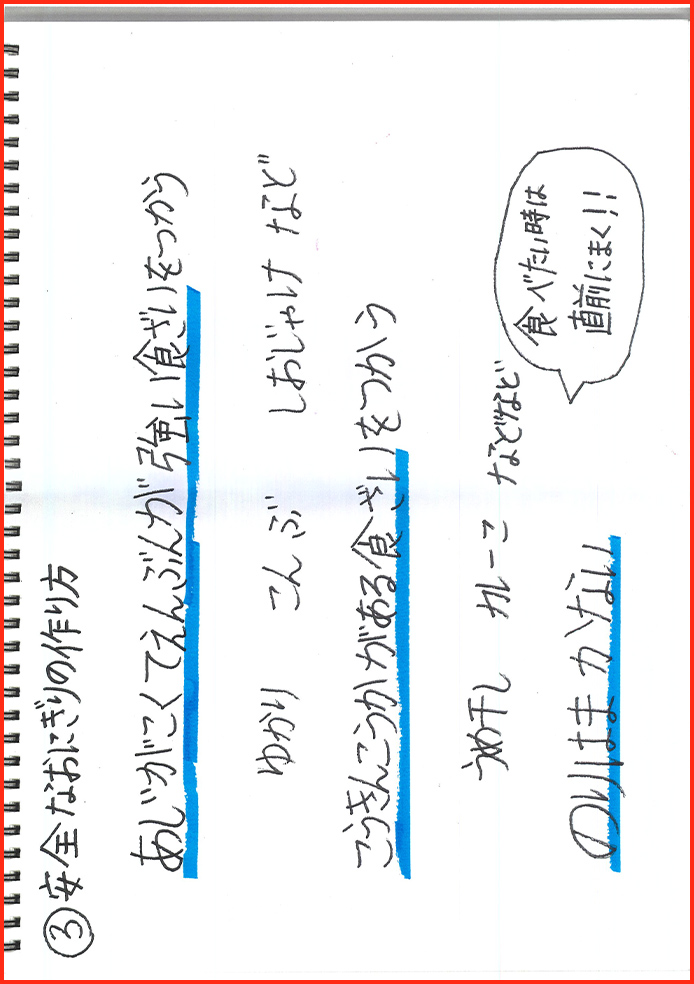 ③安全なおにぎりの作り方
あじがこくてえんぶんが強い食ざいをつかう
ゆかり こんぶ しおじゃけ など
こうきんこうかがある食ざいをつかう
うめ干し カレーこ などなど
のりはまかない
食べたい時は
直前にまく!!